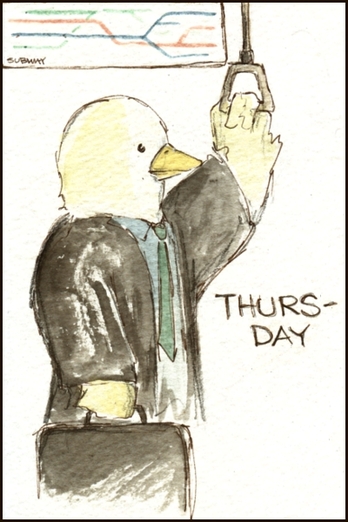 SUBWAY
THURS-
DAY